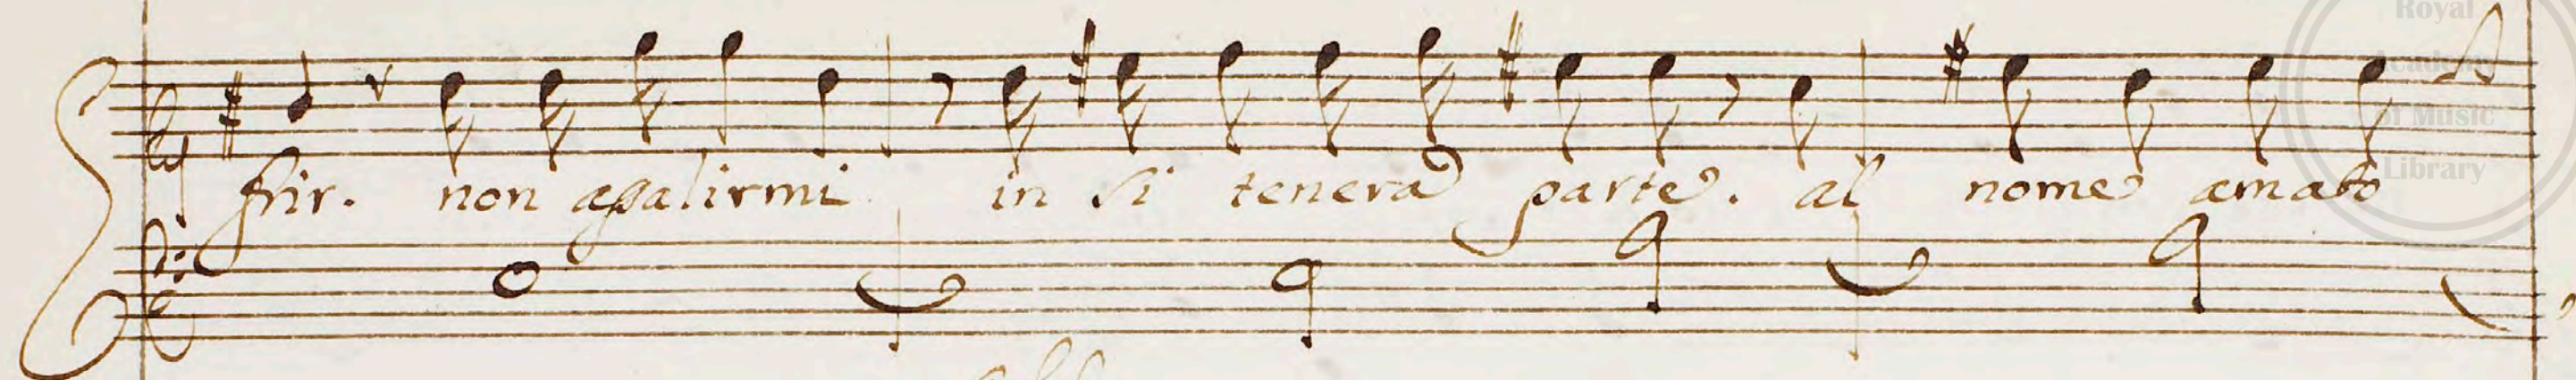 Royal
Academy
of Music
Library
frir. non assalirmi in si tenera parte. al nome amato